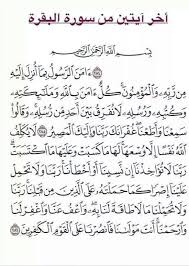 أخر آيتين من سورة البقرة
بِسْمِ اللَّهِ الرَّحْمَٰنِ الرَّحِيمِ
ءَامَنَ الرَّسُولُ بِمَا أُنزِلَ إِلَيْهِ
مِن رَّبِّهِ وَالْمُؤْمِنُونَ كُلٌّ ءَامَنَ بِاللَّهِ وَمَلَٰٓئِكَتِهِ
وَكُتُبِهِ وَرُسُلِهِ لَا نُفَرِّقُ بَيْنَ أَحَدٍ مِّن رُّسُلِهِ وَقَالُوا
سَمِعْنَا وَأَطَعْنَا غُفْرَانَكَ رَبَّنَا وَإِلَيْكَ الْمَصِيرُ ٢٨٥ لَا يُكَلِّفُ
اللَّهُ نَفْسًا إِلَّا وُسْعَهَا لَهَا مَا كَسَبَتْ وَعَلَيْهَا مَا اكْتَسَبَتْ
رَبَّنَا لَا تُؤَاخِذْنَا إِن نَّسِينَا أَوْ أَخْطَأْنَا رَبَّنَا وَلَا تَحْمِلْ
عَلَيْنَا إِصْرًا كَمَا حَمَلْتَهُ عَلَى الَّذِينَ مِن قَبْلِنَا رَبَّنَا
وَلَا تُحَمِّلْنَا مَا لَا طَاقَةَ لَنَا بِهِ وَاعْفُ عَنَّا وَاغْفِرْ لَنَا
وَارْحَمْنَا أَنتَ مَوْلَىٰنَا فَانصُرْنَا عَلَى الْقَوْمِ الْكَٰفِرِينَ ٢٨٦